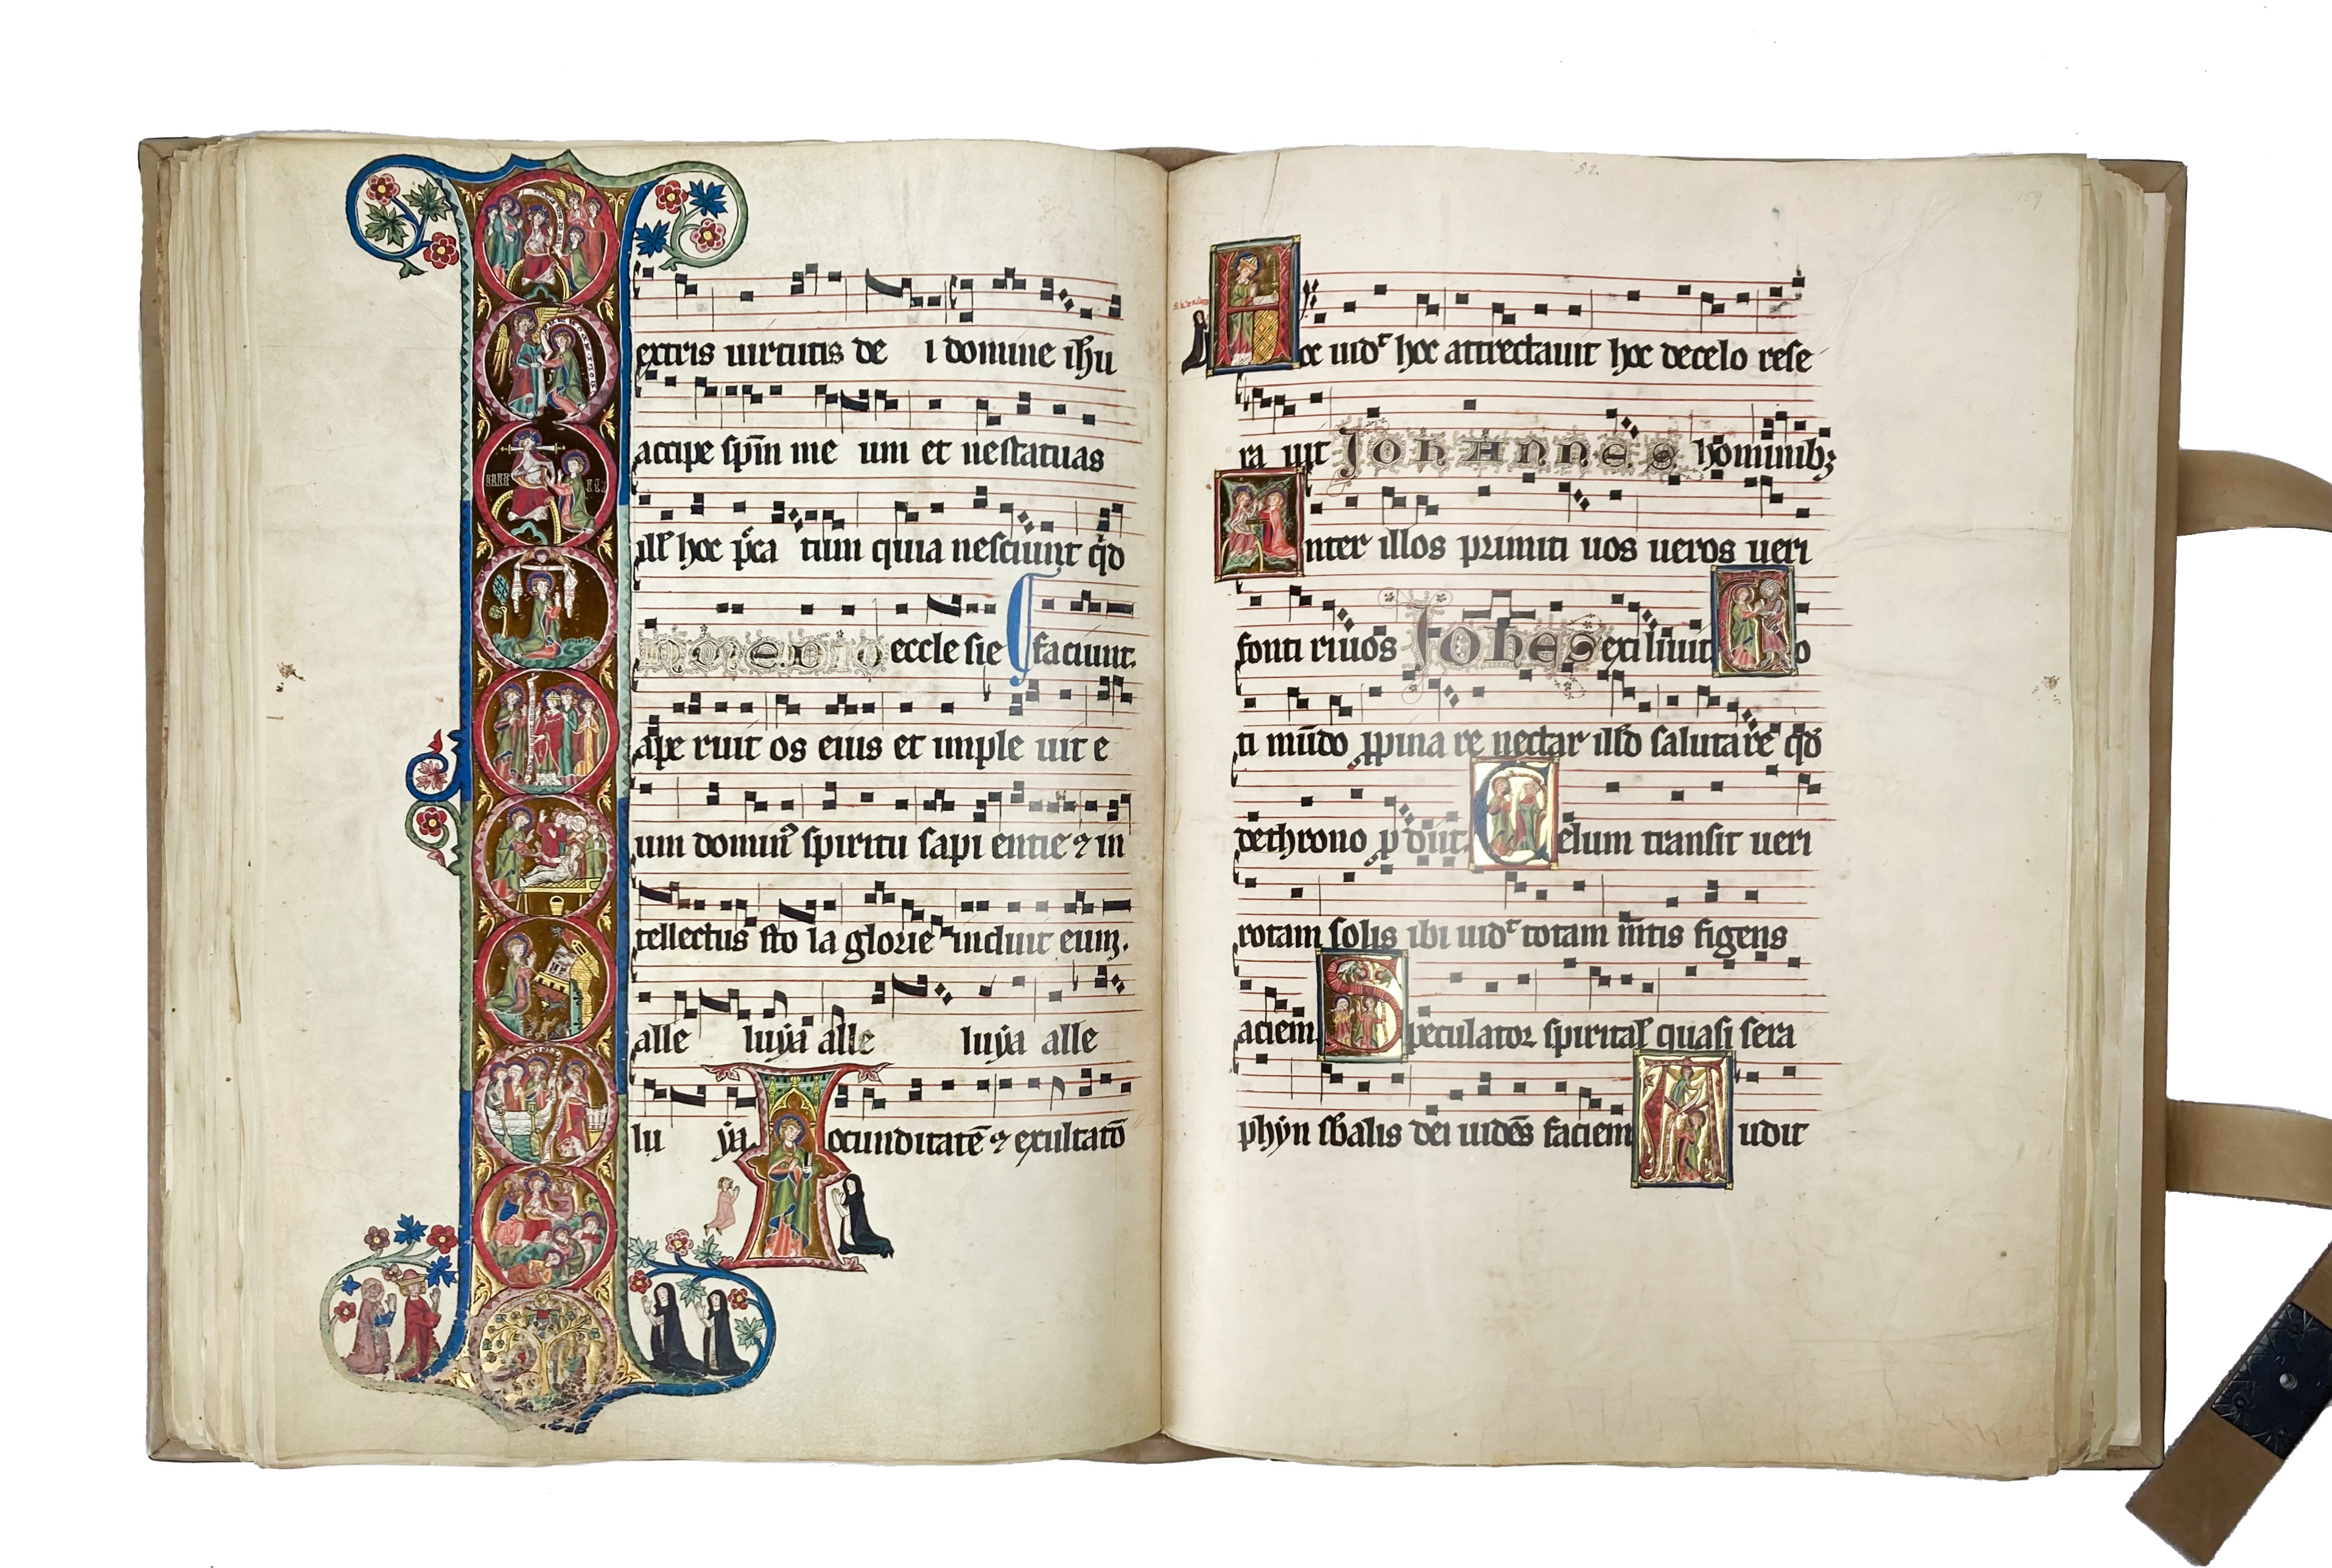 extris uirtutis de i domine ihu
accipe sp̄m me um et ne statuas
ill' hoc p̄cca tum quia nesciunt q̇d
N MEDIO ecclesie faciunt.
ape ruit os eius et imple uit e
um domin⁹ spiritu sapi entie ⁊ in
tellectus sto la glorie induit eum.
alle luẏa alle luẏa alle
lu ẏa Iocunditatē ⁊ exultatō
52.
159
Hoc uidᵗ hoc attrectauit hoc de celo rese
ra uit JOHANNES hominibꝫ
Inter illos primiti uos ueros ueri
fonti riuos JOHES exiliuit To
ti mūdo ꝓpina re nectar illđ salutare qđ
de throno ꝓdiit. Celum transit ueri
rotam solis ibi uidᵗ totam mētis figens
aciem Speculator spirital' quasi sera
phẏn sb alis dei uidēs faciem Audit